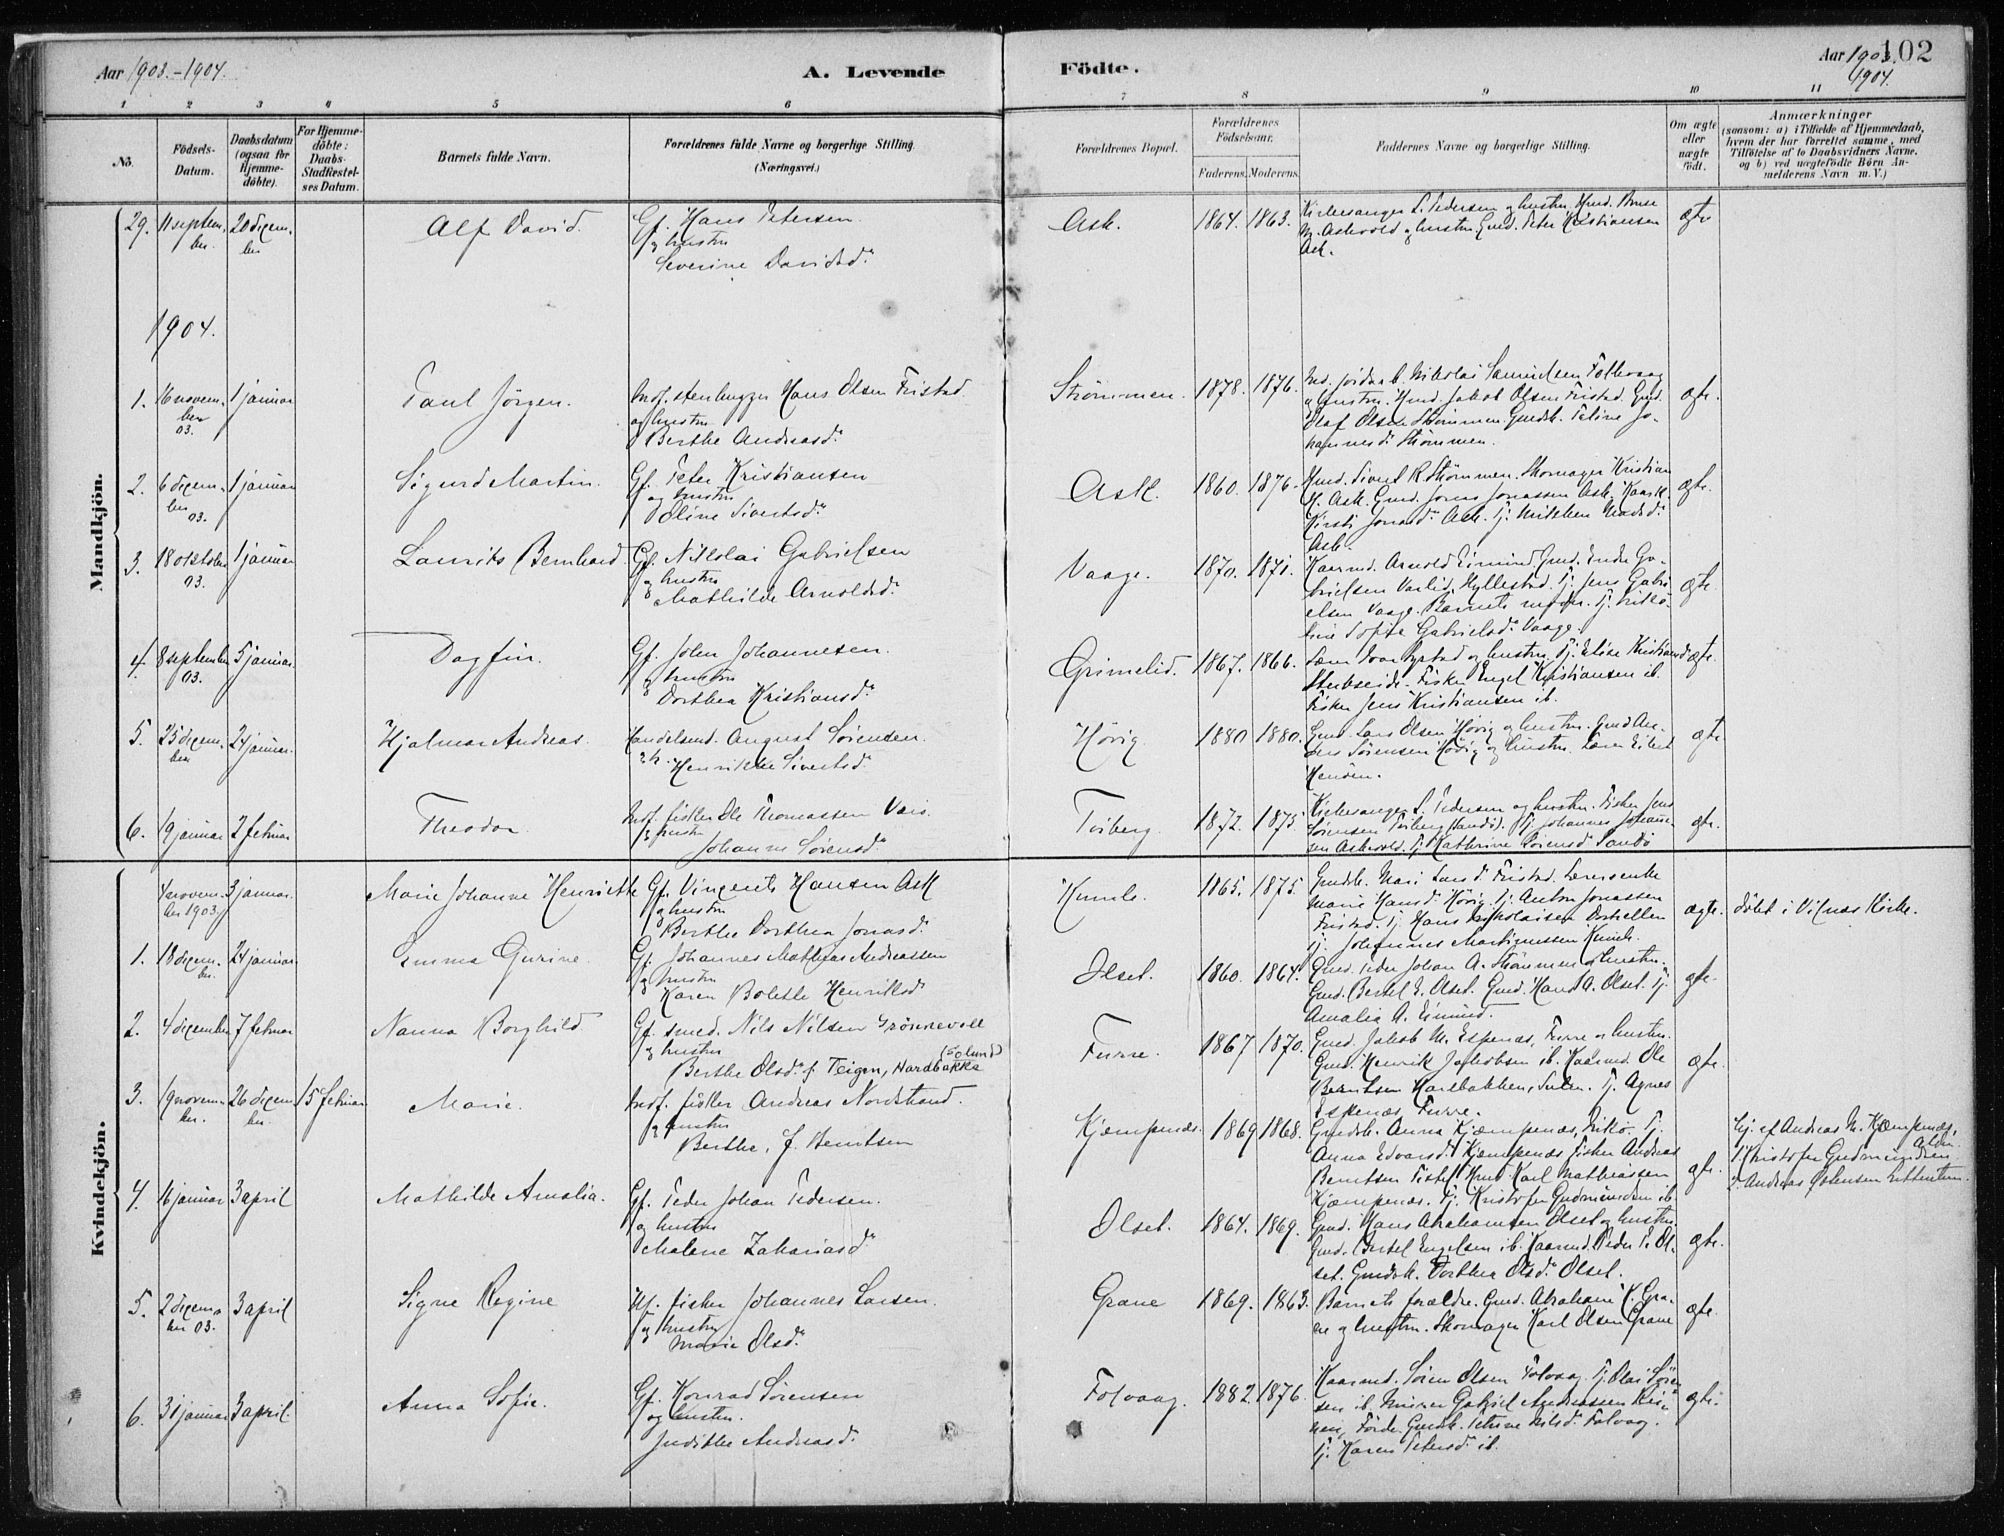 Aar 1903.-1904.
A. Levende
Födte.
Aar 1903.
1904.
102
1 2 3 4 5 6 7 8 9 10 11
No.
Födsels-Datum.
Daabsdatum (ogsaa for Hjemme-döbte).
For Hjemme-döbte: Daabs-Stadfæstel-ses Datum.
Barnets fulde Navn.
Forældrenes fulde Navne og borgerlige Stilling. (Næringsvei.)
Forældrenes Bopæl.
Forældrenes Födselsaar.
Faderens. Moderens.
Faddernes Navne og borgerlige Stilling.
Om ægte eller uægte födt.
Anmærkninger
(saasom: a) i Tilfælde af Hjemmedaab, hvem der har forrettet samme, med Tilföielse af to Daabsvidners Navne, og b) ved uægtefödte Börn An-melderens Navn m. V.)
Mandkjön.
29. 11 septem-ber 20 decem-ber Alf David. Gf. Hans Petersen og hustru Severine Davidsd. Ask. 1864. 1863. Kirkesanger L. Pedersen og hustru. Gmd. Peter Kristiansen Ask. ægte
1904.
1. 16 novem-ber 03. 1 januar Paul Jörgen. Hans Olsen Fristad og hustru Berthe Andreasd. Strömmen. 1878. 1876. Nikolai Samuelsen Folkevaag og hustru. Jakob Olsen Fristad. Gmd. Olaf Olsen Strömmen. Johannesd. Strömmen. ægte.
2. 6 decem-ber 03. 1 januar Sigurd Martin. Gf. Peter Kristiansen og hustru Oline Sivertsd. Ask. 1860. 1876. Sivert R. Strömmen. Skomager Kristian Ask. Gmd. Jonas Jonassen Ask. Kirsti Jonasd. Ask. Ask. ægte.
3. 18 oktober 03. 1 januar Laurits Bernhard Gf. Nikolai Gabrielsen og hustru Mathilde Arnoldsd. Vaage. 1870. 1871. Kaarmd. Arnold Eimind. Gmd. Endre Ga-brielsen Varlid, Hyllestad. Tj. Jens Gabri-elsen Vaage. Barnets moder. Sofie Gabrielsd. Vaage. ægte
4. 8 september 03. 5 januar. Dagfin. Gf. John Johannesen. og hustru Dorthea Kristiansd. Grimelid. 1867. 1866. og hustru. Tj. Elise Kristiansd. Fisker Engel Kristiansen ib. Fisker Jens Kristiansen ib. ægte.
5. 25 decem-ber 24 januar. Hjalmar Andreas. Handelsmd. August Sörensen. Henrikke Sivertsd. Hövig 1880 1880. Gmd. Lars Olsen Hövig og hustru. Sörensen Hövig og hustru. ægte
6. 19 januar 2 februar Theodor Ole Thomassen og hustru Johanne Sörensd. Tviberg. 1872. 1875. Kirkesanger L. Pedersen og hustru. Fisker Jens Sörensen Tviberg. Tj. Johannes Johann-sen Askvold. Tj. Kathrine Sörensd. ægte.
Kvindekjön.
4 novem-ber 1903. 3 januar. Marie Johanne Henriette Gf. Vingents Hansen Ask og hustru Berthe Dorthea Jonasd. 1865. 1875. Gmdsk. Mari Larsd. Fristad. Marie Hansd. Hövig. Tj. Anton Jonassen Fristad. Tj. Johannes Martinussen ægte. döbt i Vilnæs Kirke.
1. 18 decem-ber. 24 januar Emma Gurine. Gf. Johannes Mathias Andreassen og hustru Karen Bolette Henriksd. Olset. 1860. 1864. Gmd. Peder Johan A. Strömmen og hustru. Gmd. Bertel E. Olset. Gmd. Hans A. Olset. Tj. Amalia A. Eimind. ægte.
2. 4 december 7 februar Nanna Borghild Gf. smed. Nils Nilsen Grönnevoll og hustru Berthe Olsd. f. Teigen, Hardbakke (Solund) Furre. 1867 1870. Gmd. Jakob M. Espenæs, Furre og hustru. Gmd. Henrik Jakobsen ib. Kaarmd. Ole Berntsen Hardbakken, Sulen. Tj. Agnes Espenæs, Furre. ægte.
3. 19 novem-ber. 26 decem-ber. 15 februar Marie. fisker Andreas Nordstrand. og hustru Berthe, f. Berntsen Kjempenæs. 1869 1868. Gmdsk. Anna Kjempenæs. Tj. Anna Edvardsd. Kjempenæs. Fisker Andreas Berntsen Karl Mathiassen Kjempenæs. Tj. Kristofer Gudmundsen ib. ægte. Hj. af Andreas M. Kjempenæs, 1. Kristofer Gudmundsen 2. Andreas
4. 16 januar 3 april Mathilde Amalia. Gf. Peder Johan Pedersen. og hustru Malene Zakariasd. Olset. 1864. 1869. Gmd. Hans Abrahamsen Olset og hustru. Gmd. Bertel Engelsen ib. Kaarmd. Peder P. Ol-set. Gmdsk. Dorthea Olsd. Olset. ægte.
5. 2 decem-ber 03. 3 april Signe Regine Hf. fisker Johannes Larsen. og hustru Marie Olsd. Grane 1869. 1863. Barnets forældre. Gmd. Abraham K. Gra-ne og hustru. Skomager Karl Olsen Grane ægte.
6. 31 januar 3 april. Anna Sofie. Gf. Konrad Sörensen og hustru. Judithe Andreasd. Folvaag. 1882. 1876. Kaarmd. Sören Olsen Folvaag. Tj. Olai Sören-sen ib. Gabriel Andreassen Förde. Gmdsk. Petrine Nilsd. Folvaag. Tj. Karen Petersd. ib. ægte.